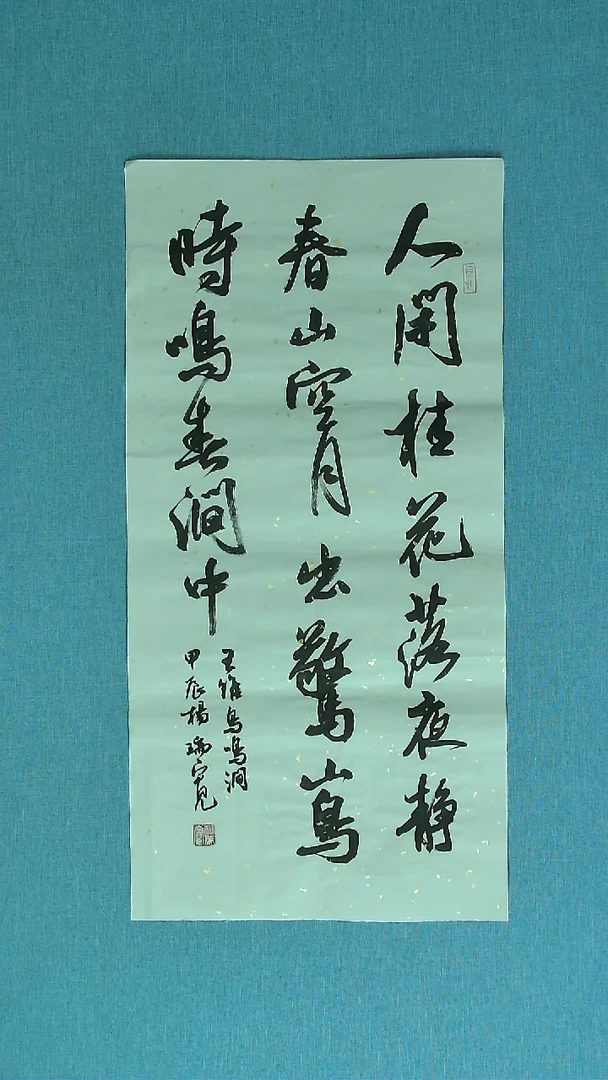 人閑桂花落夜静
春山空月出驚山鳥
時鳴春澗中
王維鳥鳴澗
甲辰楊瑞